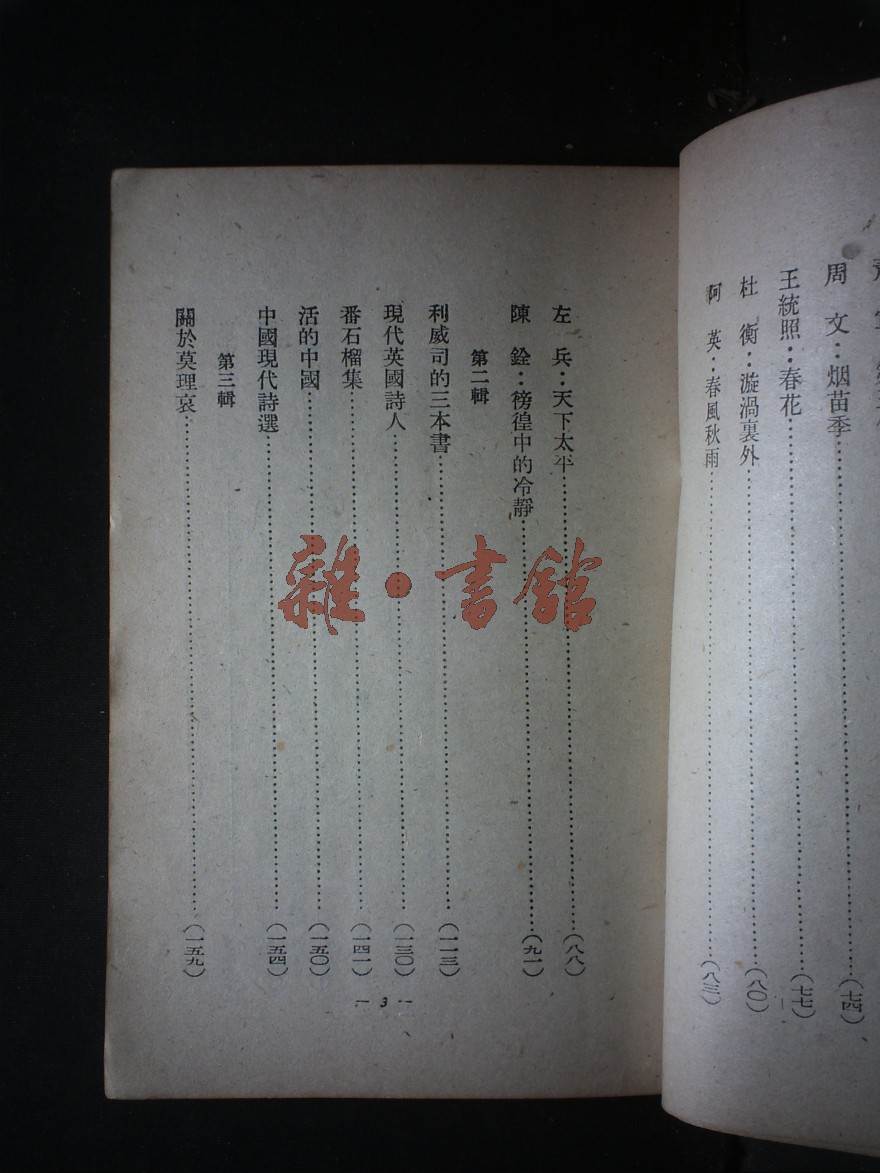 周　文：烟苗季…………（七四）
王統照：春花…………（七七）
杜　衡：漩渦裏外…………（八〇）
阿　英：春風秋雨…………（八三）
左　兵：天下太平…………（八八）
陳　銓：徬徨中的冷靜…………（九一）
第二輯
利威司的三本書…………（一一三）
現代英國詩人…………（一三〇）
番石榴集…………（一四一）
活的中國…………（一五〇）
中國現代詩選…………（一五四）
第三輯
關於莫理哀…………（一五九）
— 3 —
雜·書館